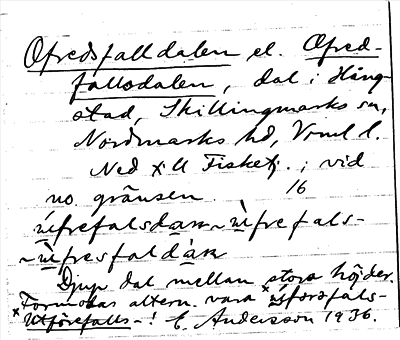 Ofredsfalldalen el. Ofred-
fallsdalen, dal i Häng-
stad, Skillingmarks sn,
Nordmarks hd, Vrml l.
Ned till Fisketj. i vid
no. gränsen 16
ùfrefalsdaɴ ~ ùfrefals-
~ ùfresfaldàɴ
Djup dal mellan stora höjder.
x Förmodas altern. vara x
Utförefalls-! E. Andersson 1936.